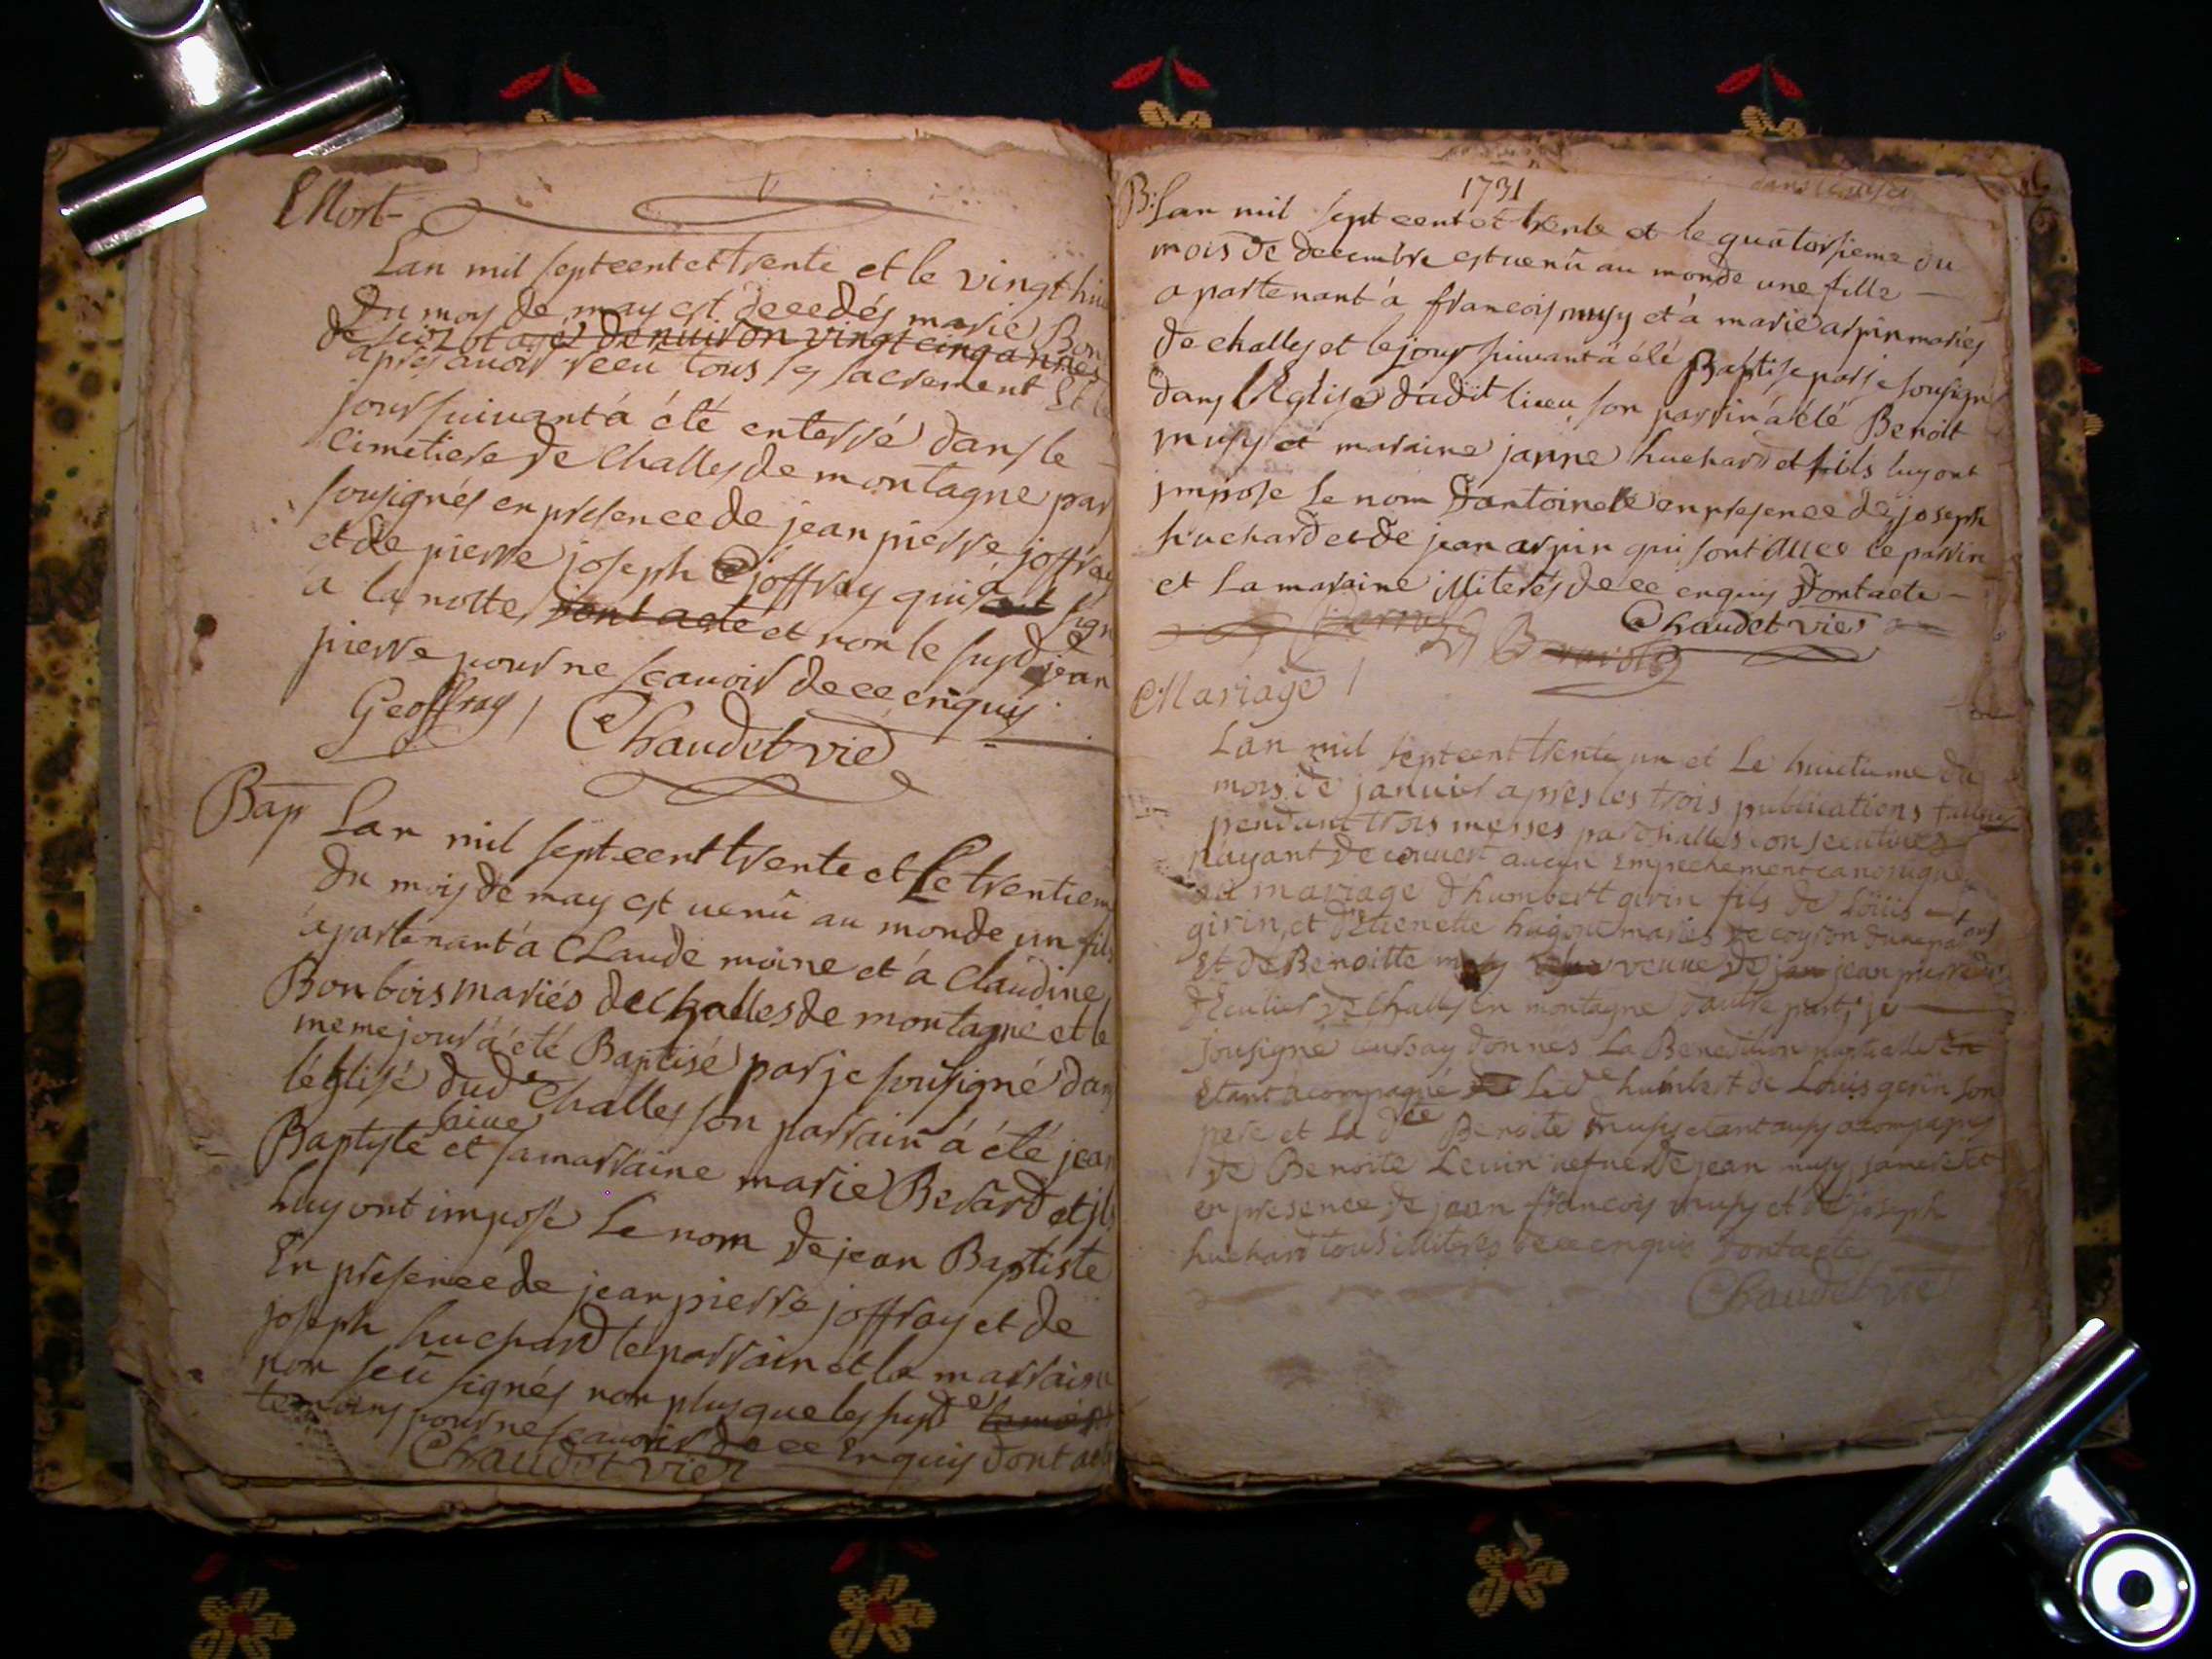 Mort
Lan mil septcentettrente et le vingt
Du moys de may est decedés marie Bon
agés denuiron vingt cinq années
apres auoir receu tous ses sacrement Et le
jour suiuant á été enterré dans le
cimetiere de Challes de montagne par
sousignés en presence de jean pierre joffray
et de pierre joseph joffray qui a signé
a la notte dont acte et non le susd jean
pierre pour ne scauoir de ce enquis
Geoffray Chaudet vie
Bap Lan mil septcent trente et Le trentiem
Du mois de may est uenu au monde un fils
apartenant a CLaude moine et á Claudine
Bonbois mariés de Challes de montagne et le
meme jour á été Baptisé par je sousigné dans
léglise dud Challes son parrain á été jean
Baptyste aiué et sa marraine marie Berard et jls
Luy ont imposé Le nom de jean Baptiste
En presence de jean pierre joffray et de
joseph huchard le parrain et la marraine
non seu signés non plus que les susd temoins
temoins pour ne scauoir de ce Enquis dont acte
Chaudet vier
1731
B: Lan mil septcent et trente et le quatorsieme du
mois de decembre est uenu au monde une fille
apartenant á francois musy et á marie arpin mariés
de challes et le jour suiuant á été Baptise par je sousigné
dans l'Eglise dudit lieu son parrin á été Benoit
musy et maraine janne huchard et jls luy ont
jmpose le nom Dantoinette en presence de joseph
huchard et de jean arpin qui sont auec le parrin
et La maraine illiterés de ce enquis Dont acte
Chaudet vier
Mariage
Lan mil septcent trente un et Le huictieme du
mois de januier apres les trois publications faittes
pendant trois messes parochialles consecutiues
nayant decouuert aucun Empechement canonique
au mariage d'humbert girin fils de Loüis
girin, et d'Etienette hugont mariés de coyron dune part
Et de Benoitte musy veuue de jean pierre
de Challes en montagne dautre part, je
sousigné leur ay donnés La Benediction nuptialle
etant acompagné Led humbert de Louis gerin son
pere et La dee Benoite musy etant aussy acompagnés
de Benoite Leuin uefue de jean musy sa mere et
en presence de jean francois musy et de joseph
huchard tous illiterés de ce enquis Dont acte
Chaudet vie